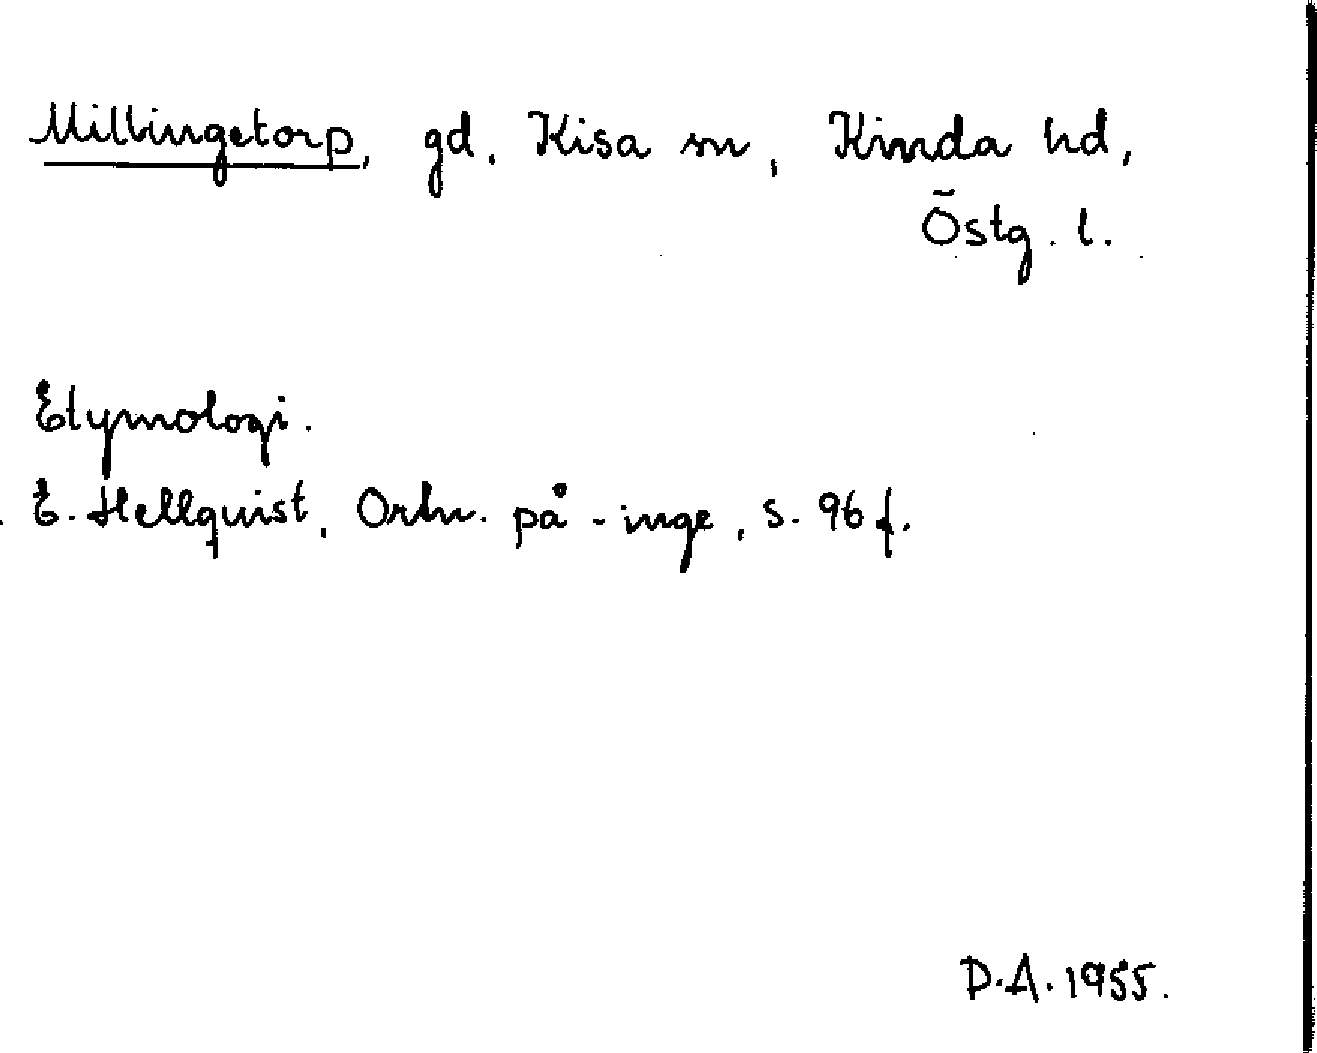 Millingetorp, gd, Kisa sn, Kinda hd,
Östg. l.
Etymologi.
E. Hellquist, Ortn. på -inge, s. 96 f.
D.A. 1955.